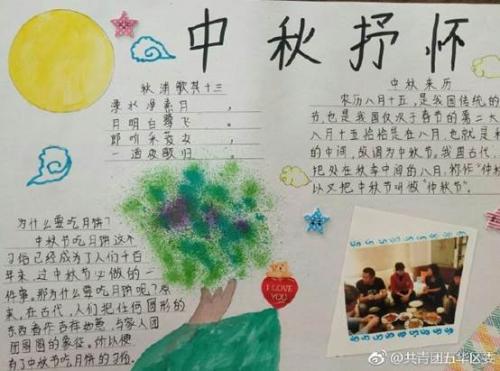 中秋抒怀
秋浦歌其十三
渌水净素月，
月明白鹭飞。
郎听采菱女，
一道夜歌归。
中秋来历
农历八月十五，是我国传统的
节，也是我国仅次于春节的第二大
八月十五恰恰是在八月，也就是
的中间，故谓为中秋节。我国古代
把处在秋季中间的八月，称作“仲秋
以又把中秋节叫做“仲秋节”。
为什么要吃月饼？
中秋节吃月饼这个
习俗已经成为了人们千百
年来，过中秋节必做的一
件事。那为什么要吃月饼呢？原
来，在古代，人们把任何圆形的
东西看作吉祥物，与家人团
团圆圆的象征。所以便
有了中秋节吃月饼的习俗。
I LOVE
YOU
@共青团五华区委